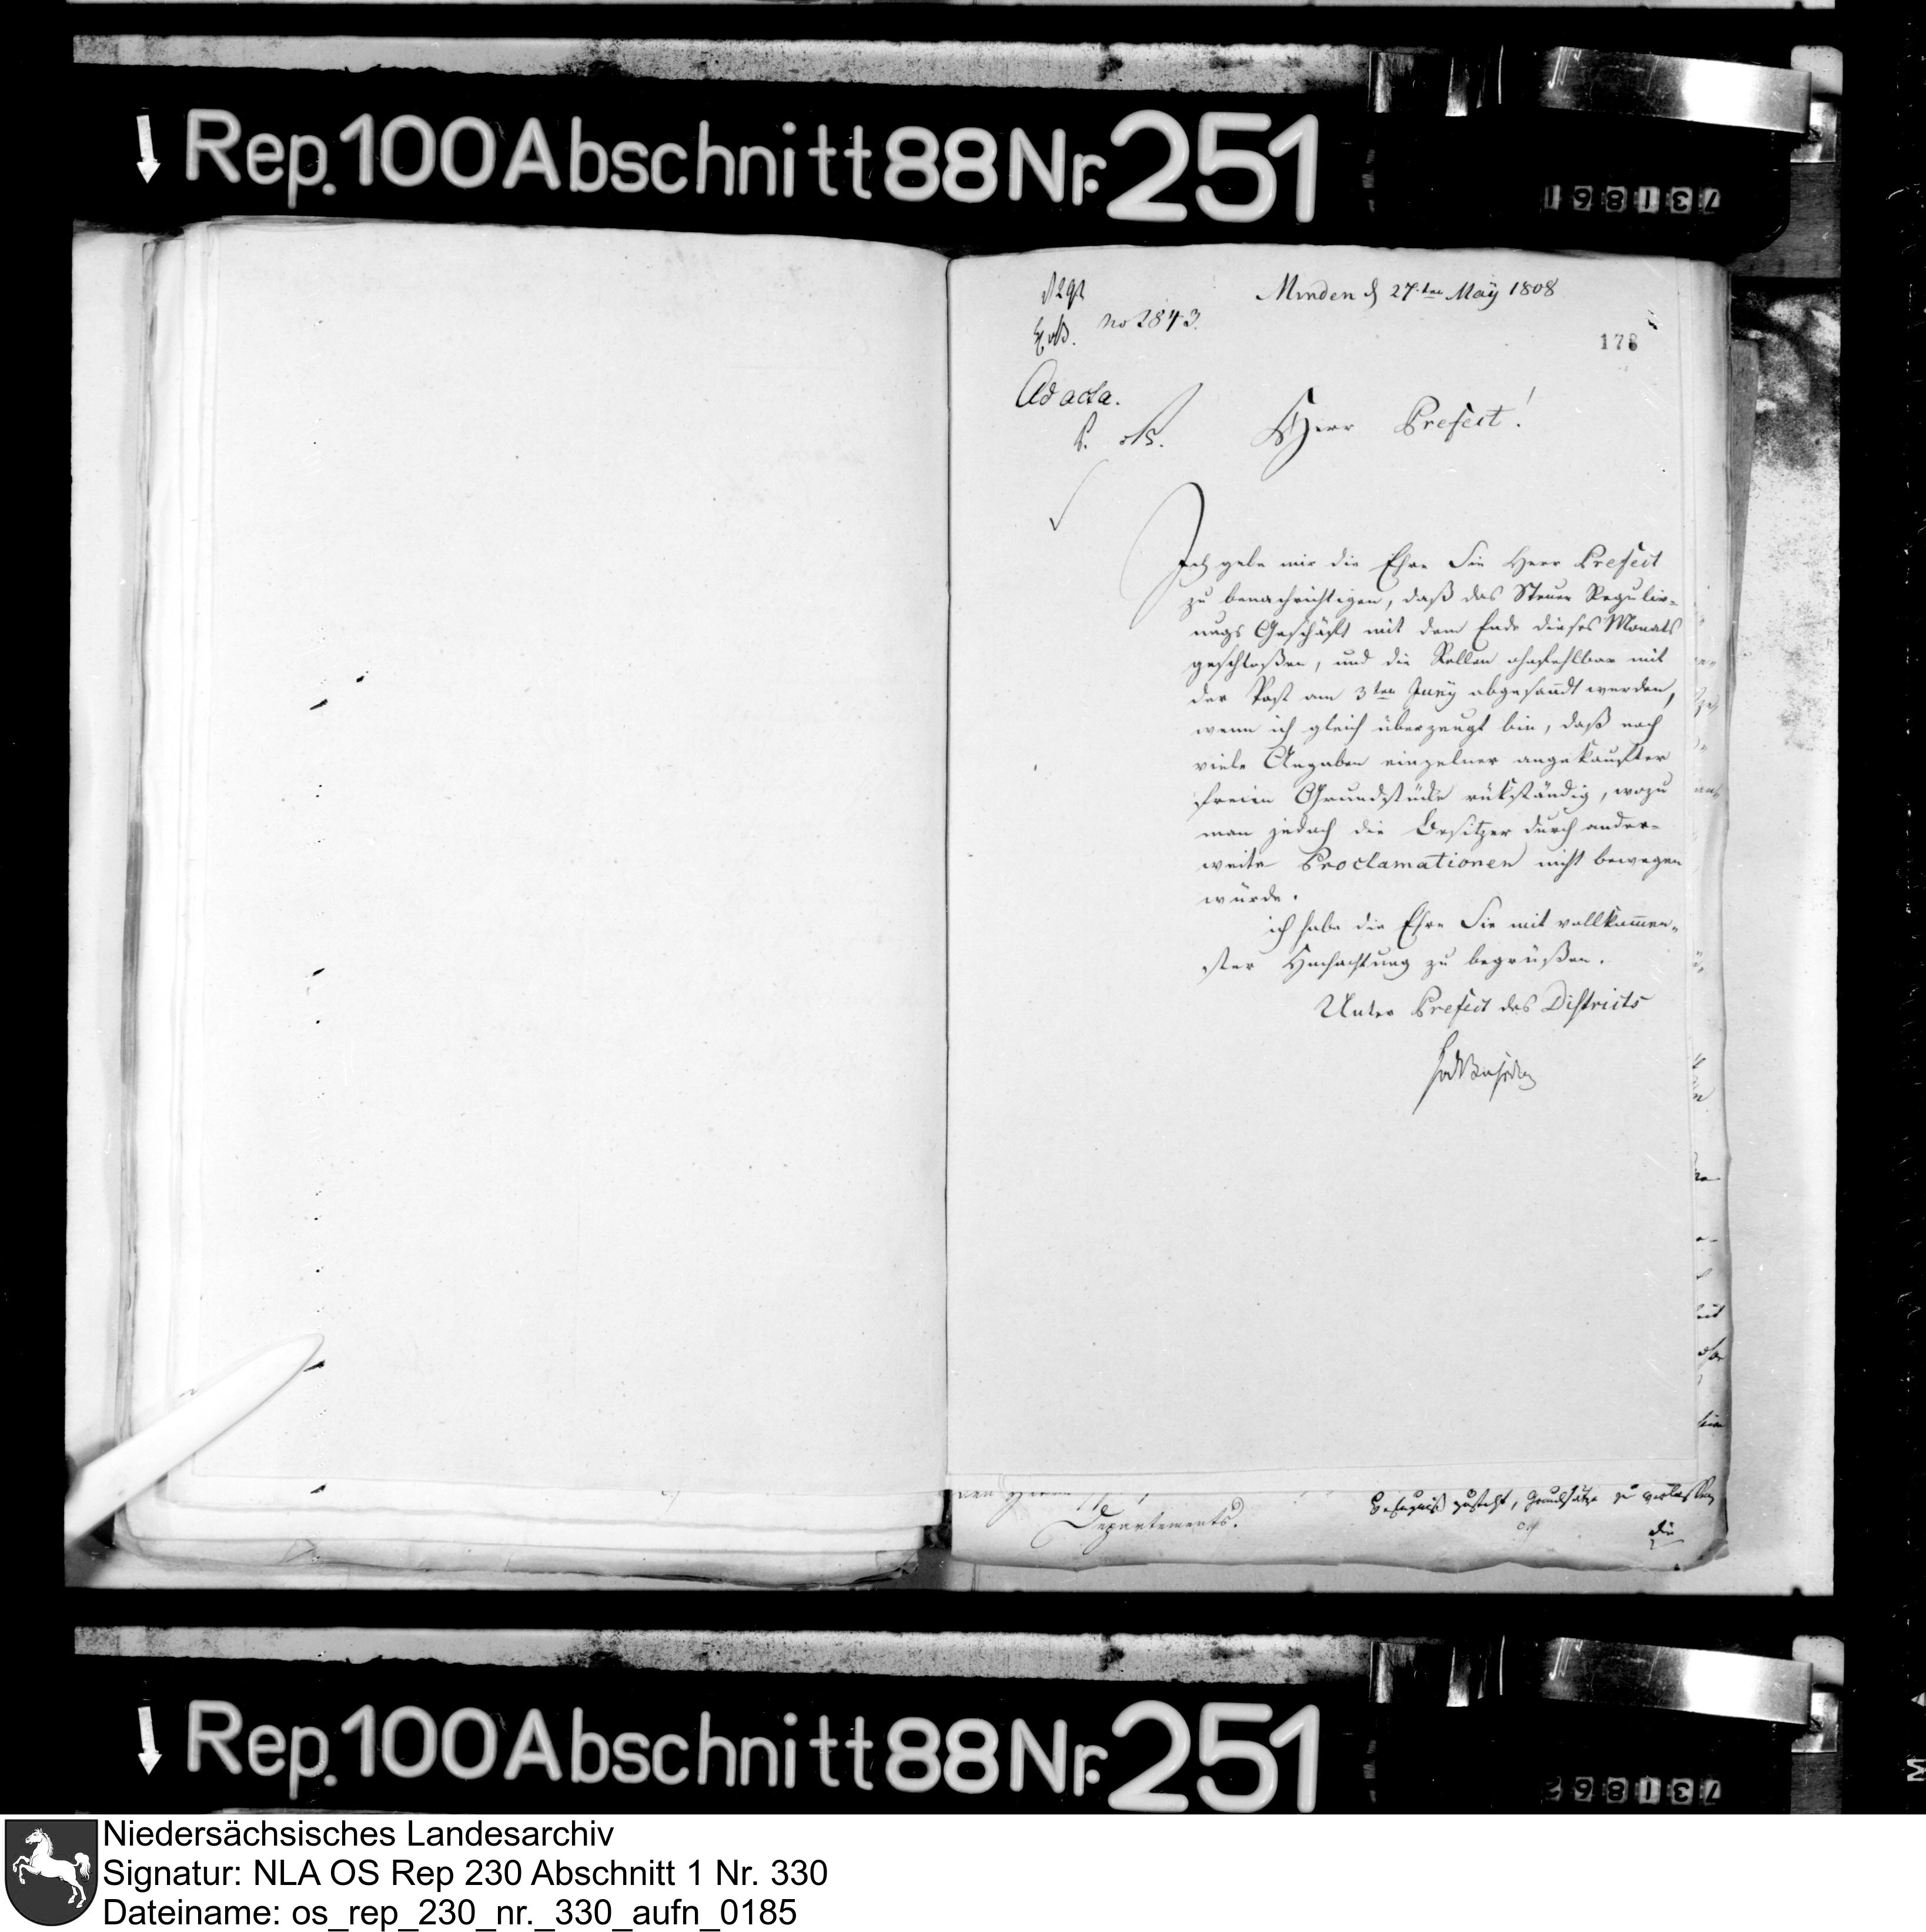 Rep. 100 Abschnitt 88 Nr. 251
731861
Minden d 27ten May 1808
no 2843.
178
Ad acta.
Herr Prefect!
Ich gebe mir die Ehre Sie Herr Prefect
zu benachrichtigen, daß das Steuer Regulir-
ungs Geschäft mit dem Ende dieses Monats
geschloßen, und die Rollen ohnfehlbar mit
der Post am 3ten Juny abgesandt werden,
wenn ich gleich überzeugt bin, daß noch
viele Angaben einzelner angekaufter
freien Grundstücke rükständig, wozu
man jedoch die Besitzer durch ander-
weite Proclamationen nicht bewegen
würde.
ich habe die Ehre Sie mit vollkommen-
ster Hochachtung zu begrüßen.
Unter Prefect des Districts
Departements.
Befugniß zusteht, Grundsätze zu verlassen
die
Rep. 100 Abschnitt 88 Nr. 251
731862
Niedersächsisches Landesarchiv
Signatur: NLA OS Rep 230 Abschnitt 1 Nr. 330
Dateiname: os_rep_230_nr._330_aufn_0185